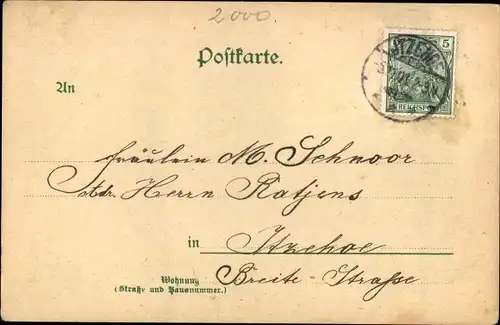 2000.
Postkarte.
ITZEHOE
5
REICHSPOST
An
Fräulein M. Schnoor
Adr. Herrn Ratjens
in Itzehoe
Wohnung
(Straße und Hausnummer.)
Breite-Straße